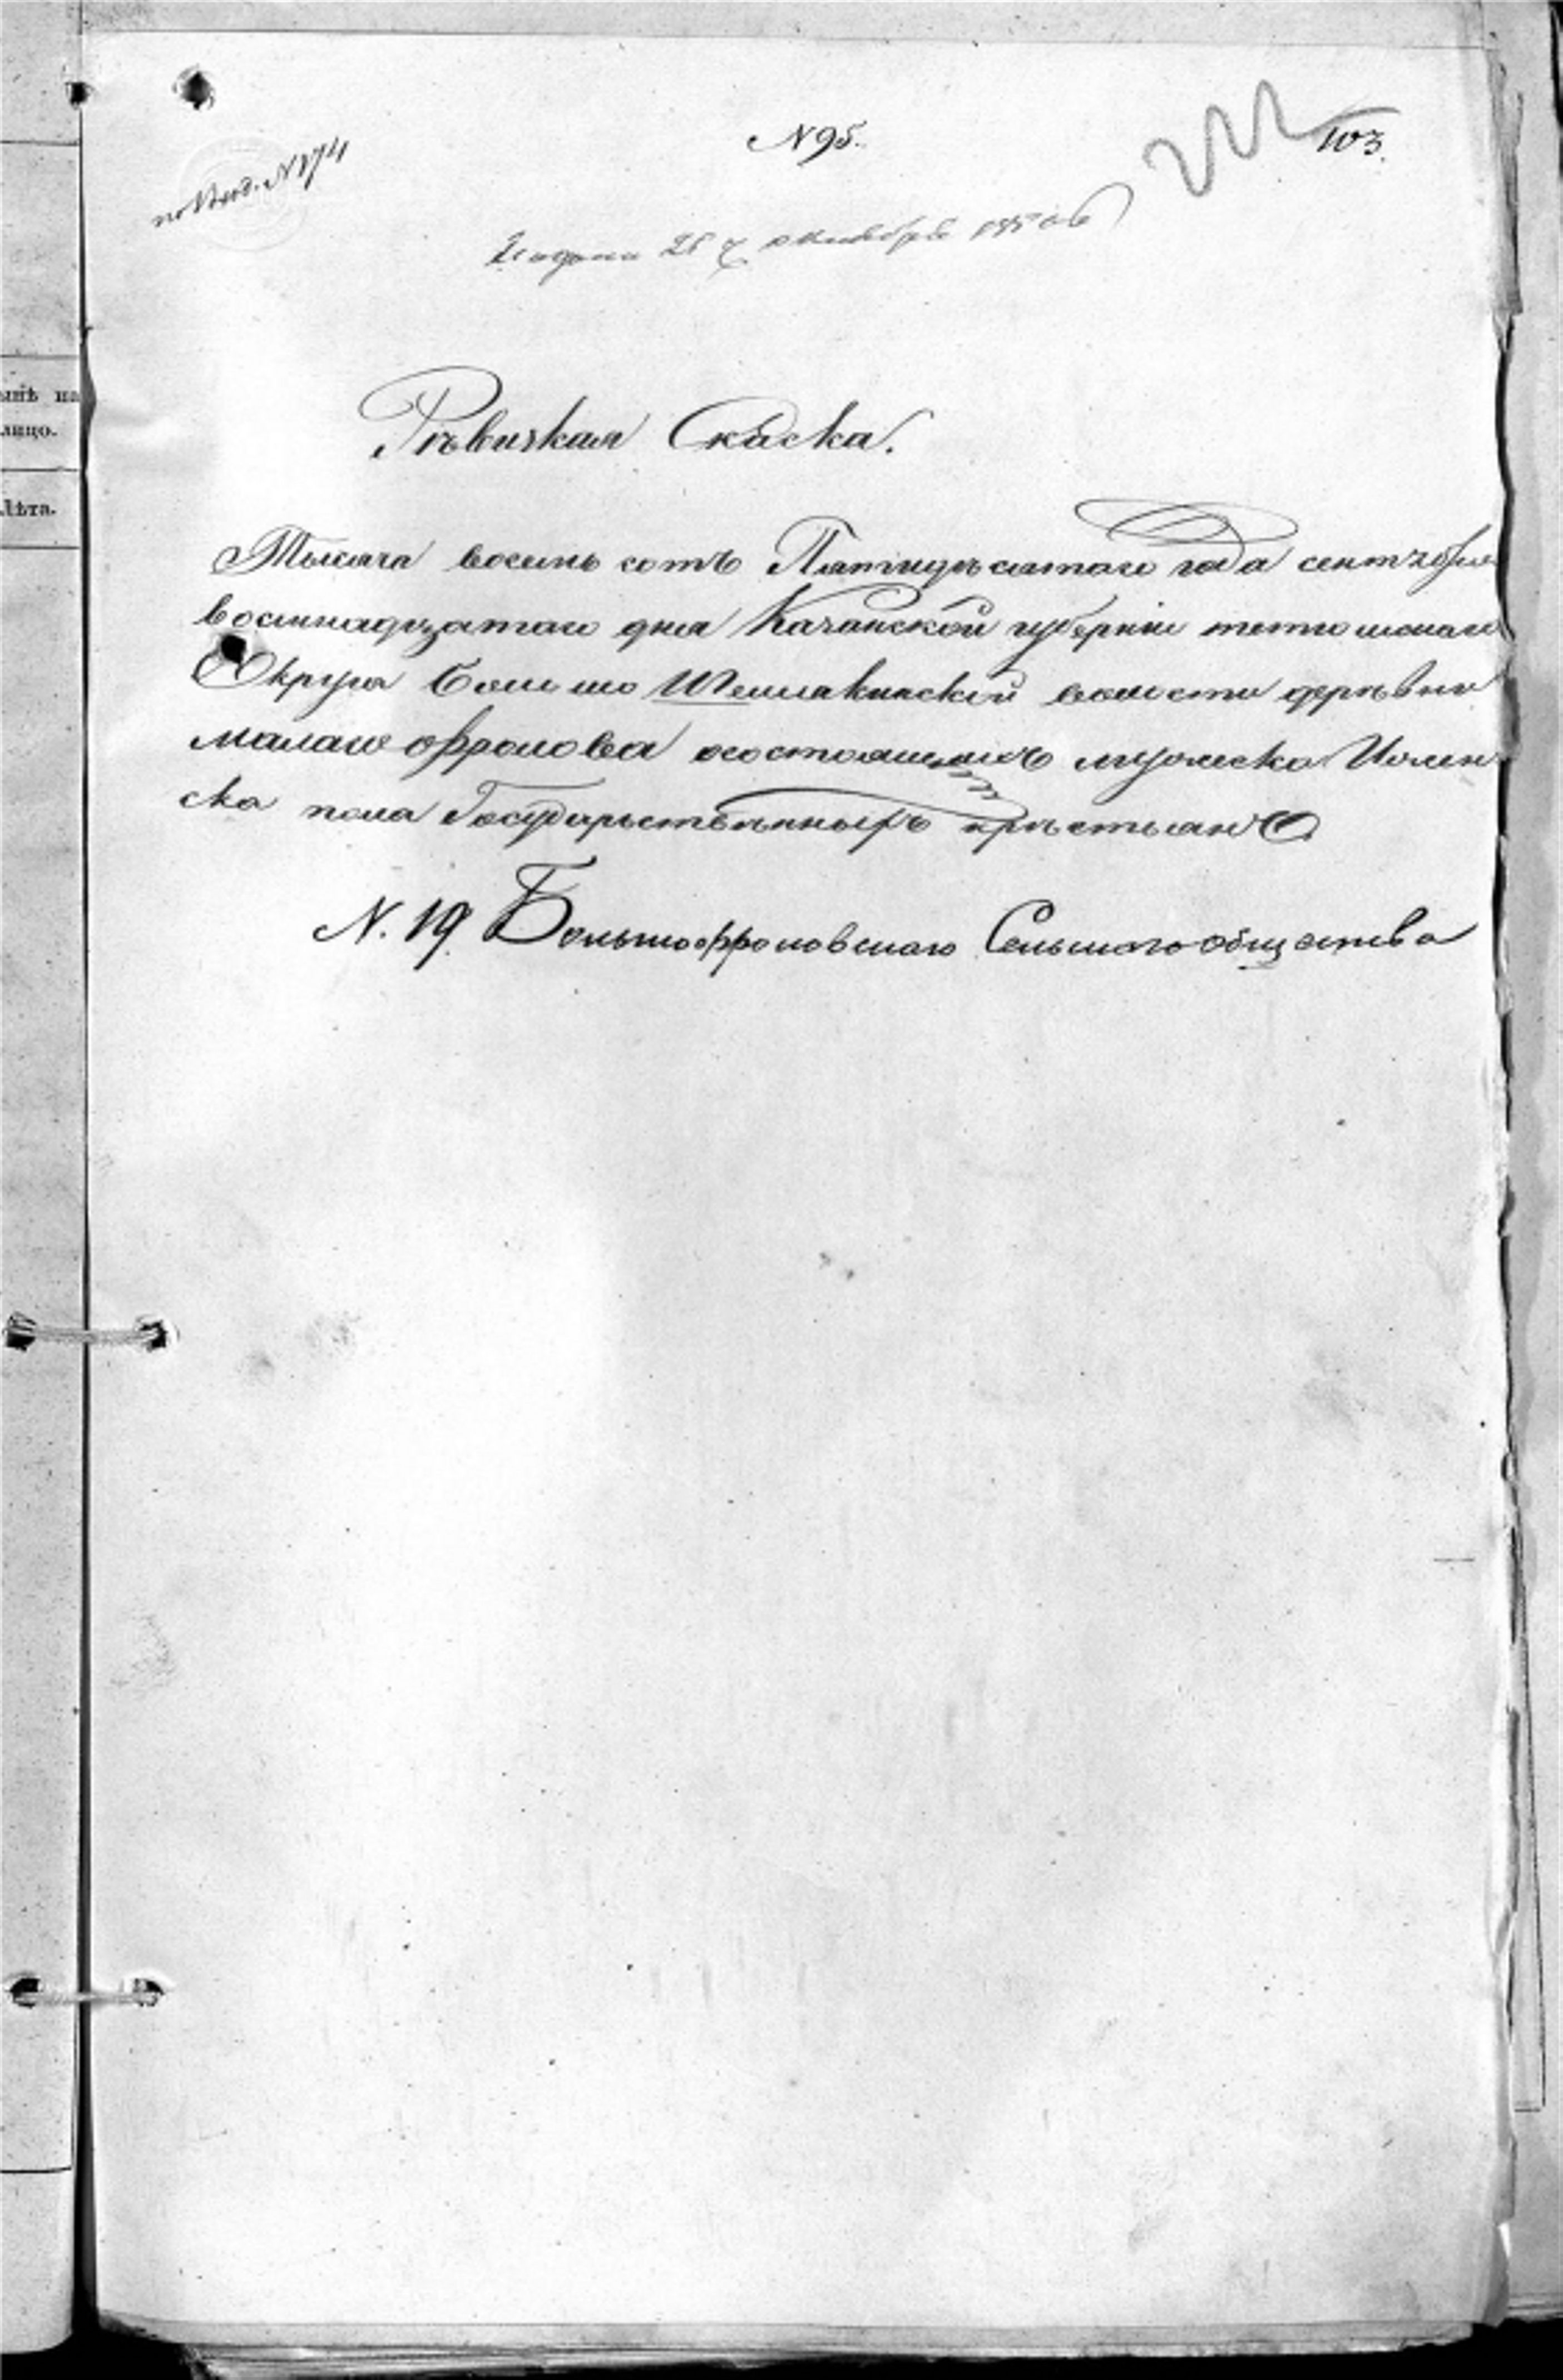 N 95.
103.
по Вход. N 174
Подана 26 октября 1850
Ревизкая Скаска.
Тысяча восемь сотъ Пятидесятаго года сентября
восмнадцатаго дня Казанской губерніи тетюшскаго
Округа Больше Шемякинской волости деревни
малаго Фролова осостоящихъ мужеска Иженс
ка пола Государьственныхъ крестьянъ
N. 19. Большефроловскаго Сельскаго общества
ынѣ на
лицо.
Лѣта.